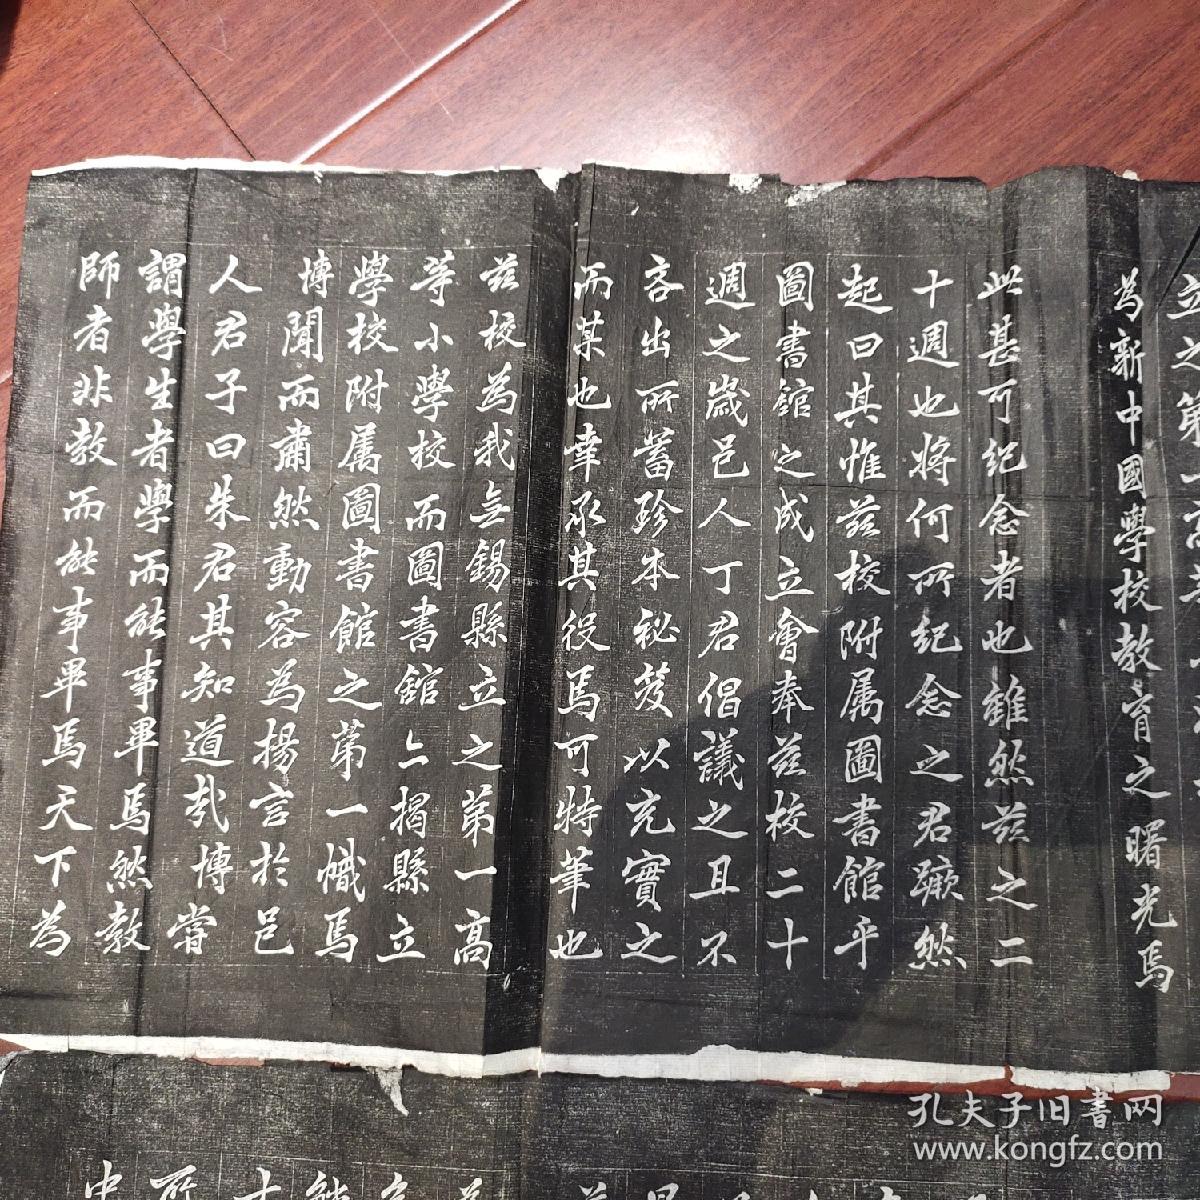 立之第一高等
為新中國學校教育之曙光焉
此甚可紀念者也雖然茲之二
十週也將何所紀念之君蹶然
起曰其惟茲校附属圖書館乎
圖書館之成立會奉茲校二十
週之歲邑人丁君倡議之且不
吝出所蓄珍本秘笈以充實之
而某也幸承其役焉可特筆也
茲校為我無錫縣立之第一高
等小學校而圖書館亦揭縣立
學校附属圖書館之第一幟焉
博聞而肅然動容為揚言於邑
人君子曰朱君其知道哉博嘗
謂學生者學而能事畢焉然教
師者非教而能事畢焉天下為
中
所
孔夫子旧书网
www.kongfz.com